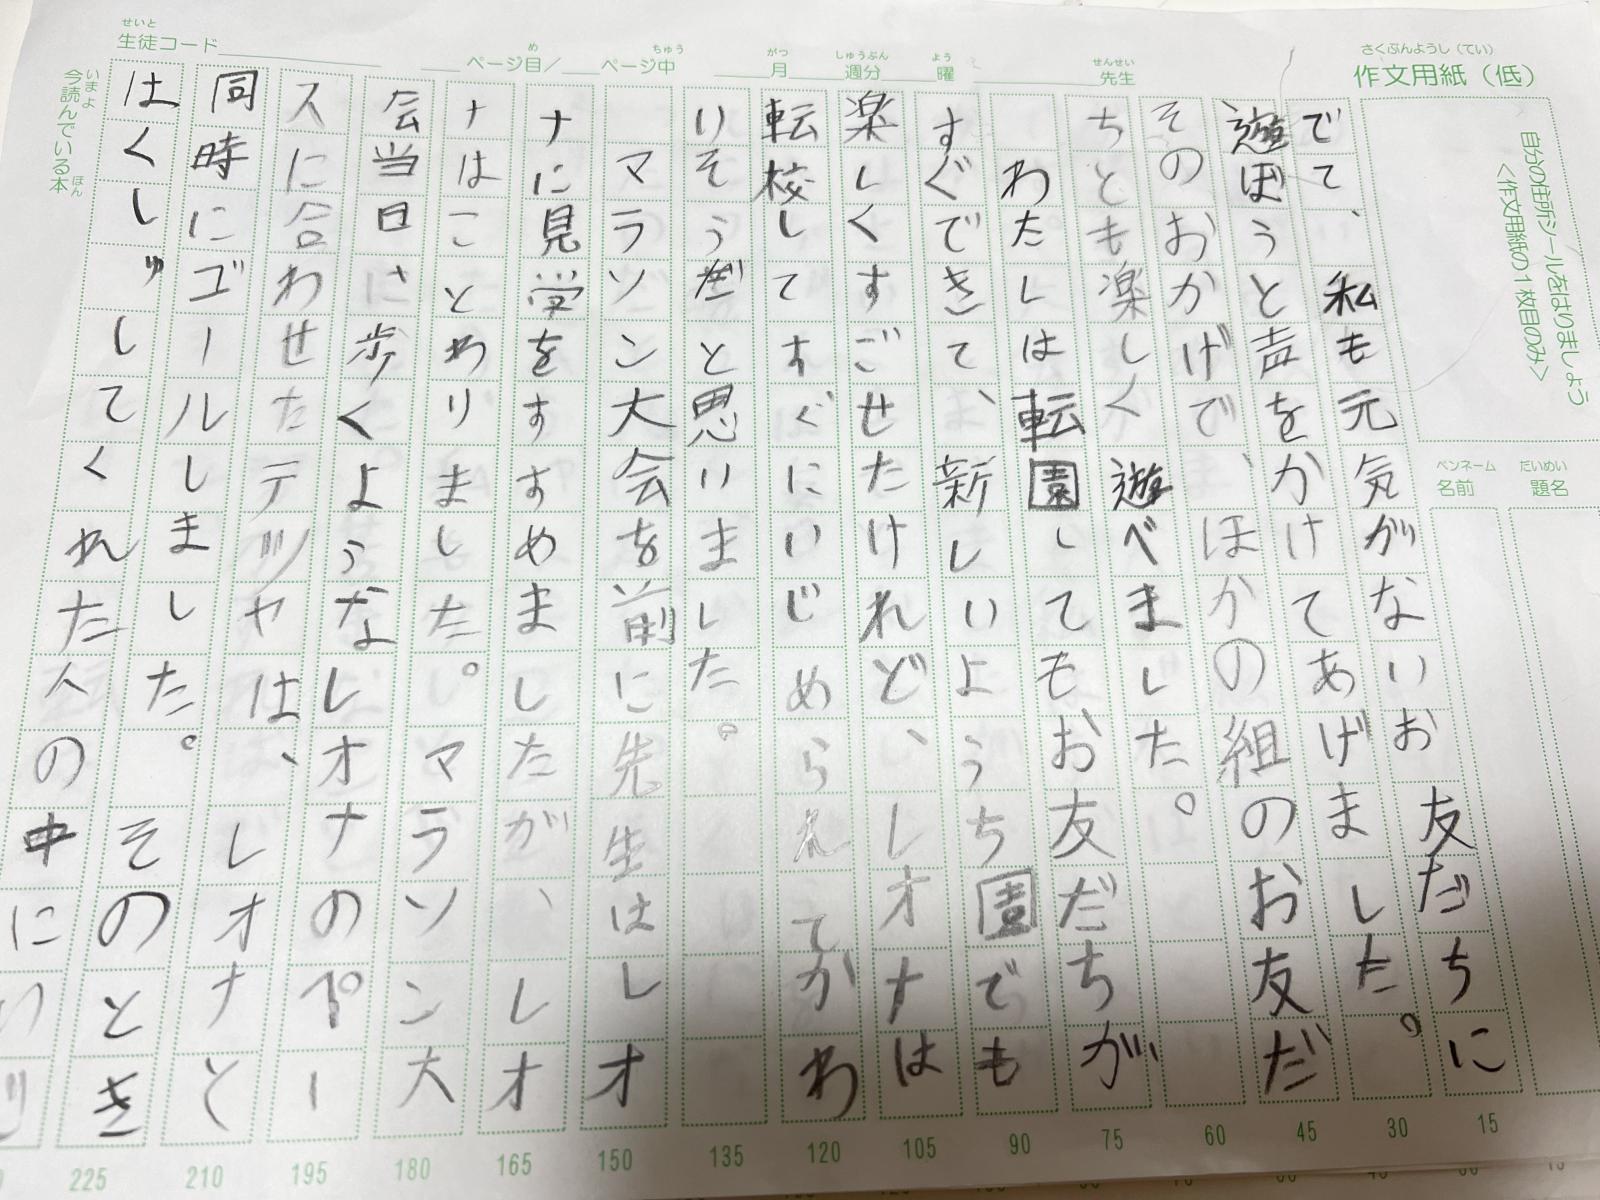 さくぶんようし（てい）
作文用紙（低）
自分の住所シールをはりましょう
＜作文用紙の１枚目のみ＞
だいめい
題名
ペンネーム
名前
せいと
生徒コード
め　ちゅう
ページ目／　ページ中
がつ　しゅうぶん　よう
月　週分　曜
せんせい
先生
でて、私も元気がないお友だちに
遊ぼうと声をかけてあげました。
そのおかげで、ほかの組のお友だ
ちとも楽しく遊べました。
わたしは転園してもお友だちが
すぐできて、新しいようち園でも
楽しくすごせたけれど、レオナは
転校してすぐにいじめられてかわ
いそうだと思いました。
マラソン大会を前に先生はレオ
ナに見学をすすめましたが、レオ
ナはことわりました。マラソン大
会当日に歩くようなレオナのペー
スに合わせたテッヤは、レオナと
同時にゴールしました。そのとき
はくしゅしてくれた人の中に
いまよ　ほん
今読んでいる本
15
30
45
60
75
90
105
120
135
150
165
180
195
210
225